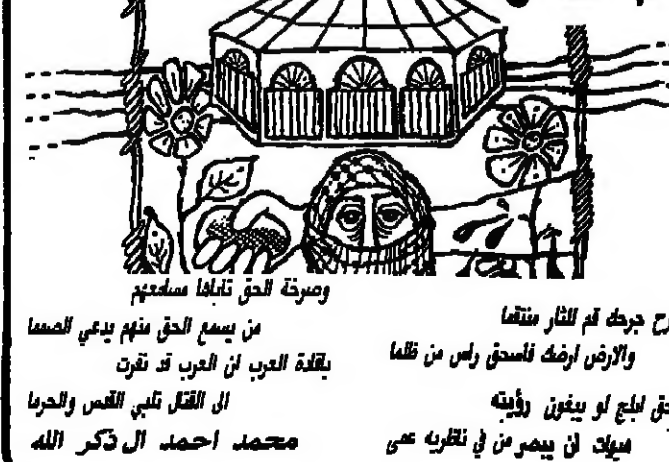 جرحك قم للثار منتقما
والارض ارضك فاسحق راس من ظلما
ابلج لو يبغون رؤيته
هيهات لن يبصر من في نظريه عمى
وصرخة الحق تاباها مسامعهم
من يسمع الحق منهم يدعي الصمما
ياقادة العرب ان العرب قد نفرت
الى القتال تلبي القدس والحرما
محمد احمد ال ذكر الله